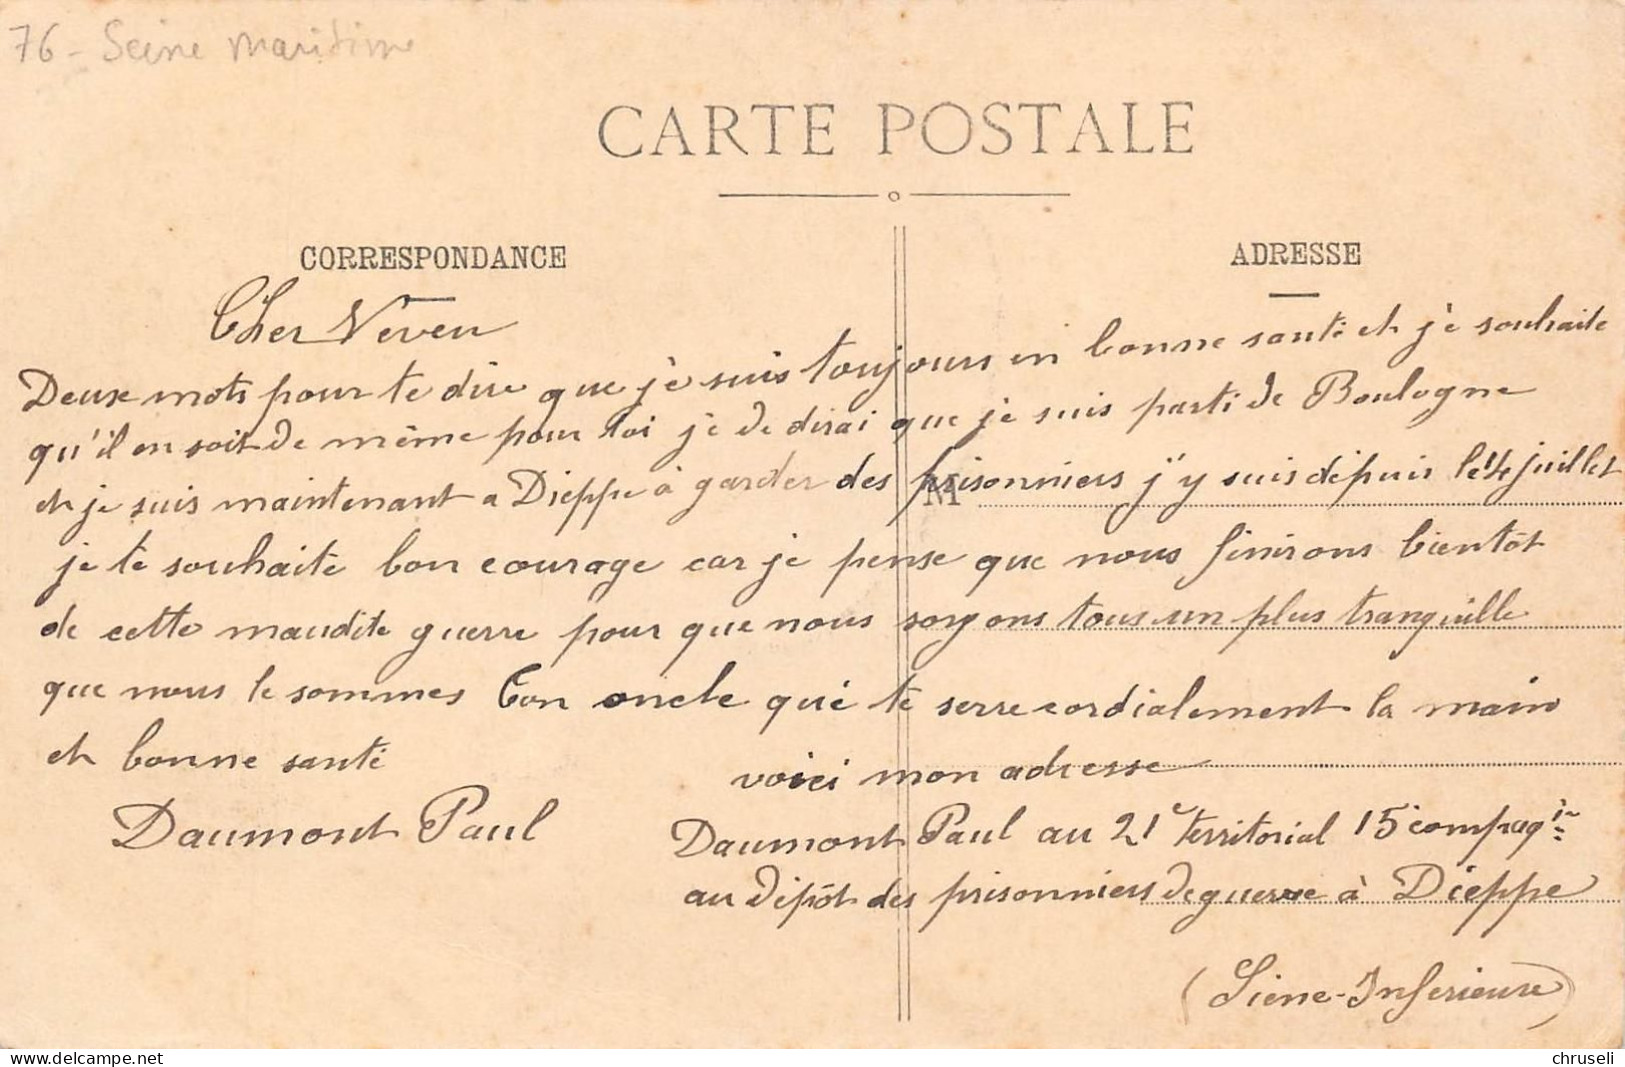 76 - Seine maritime
CARTE POSTALE
CORRESPONDANCE
ADRESSE
Cher Neveu
Deux mots pour te dire que je suis toujours en bonne santé et je souhaite
qu'il en soit de même pour toi je te dirai que je suis parti de Boulogne
et je suis maintenant a Dieppe à garder des prisonniers j'y suis dépuis le 14 juillet
M
je te souhaite bon courage car je pense que nous finirons bientôt
de cette maudite guerre pour que nous soryons tous un plus tranquille
que nous le sommes Ton oncle qui te serre cordialement la main
et bonne santé
voici mon adresse
Daumont Paul
Daumont Paul au 21e Territorial 15e compagie
au dépôt des prisonniers de guerre à Dieppe
(Siene-Inferieure)
www.delcampe.net
chruseli